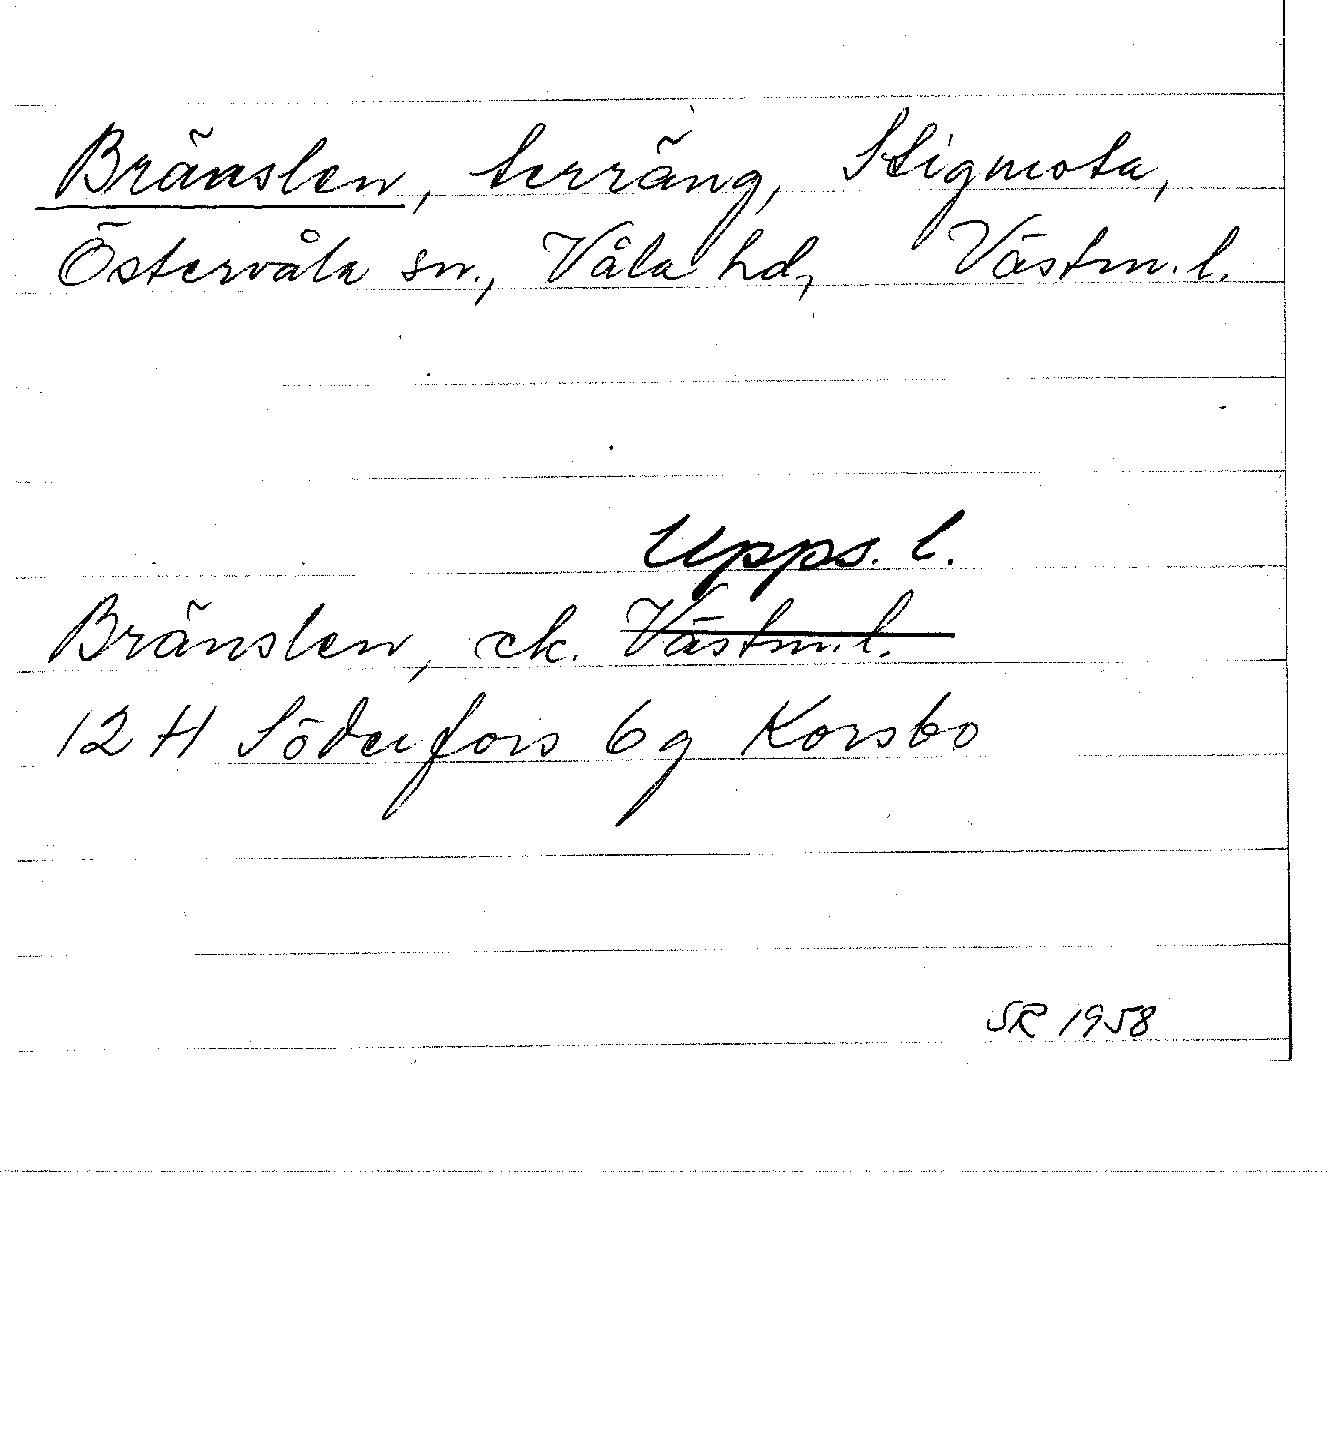 Bränslen, terräng, Stigmota,
Östervåla sn., Våla hd, Västm. l.
Upps. l.
Bränslen, ek. Västm. l.
12 H Söderfors 6g Korsbo
SR 1958